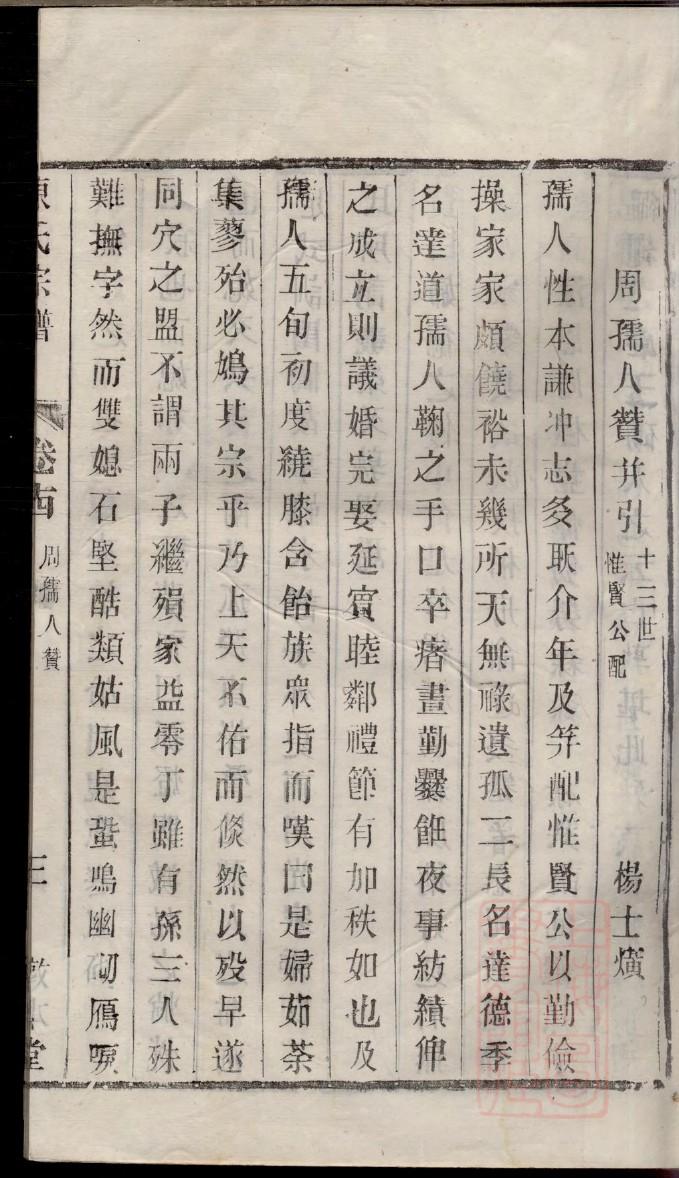 周孺人贊并引 十三世惟賢公配 楊士㸌
孺人性本謙冲志矢耿介年及笄配惟賢公以勤儉
操家家頗饒裕未幾所天無祿遺孤二長名達德季
名達道孺人鞠之手口卒瘏晝勤爨飪夜事紡績俾
之成立則議婚完娶延賓睦鄰禮節有加秩如也及
孺人五旬初度繞膝含飴族眾指而嘆曰是婦茹荼
集蓼殆必鴆其宗乎乃上天不佑而倐然以歿早遂
同穴之盟不謂兩子繼殞家益零丁雖有孫三人殊
難撫字然而雙媳石堅酷類姑風是蛩鳴幽砌鴈唳
陳氏宗譜 卷十四 周孺人贊 三 堂